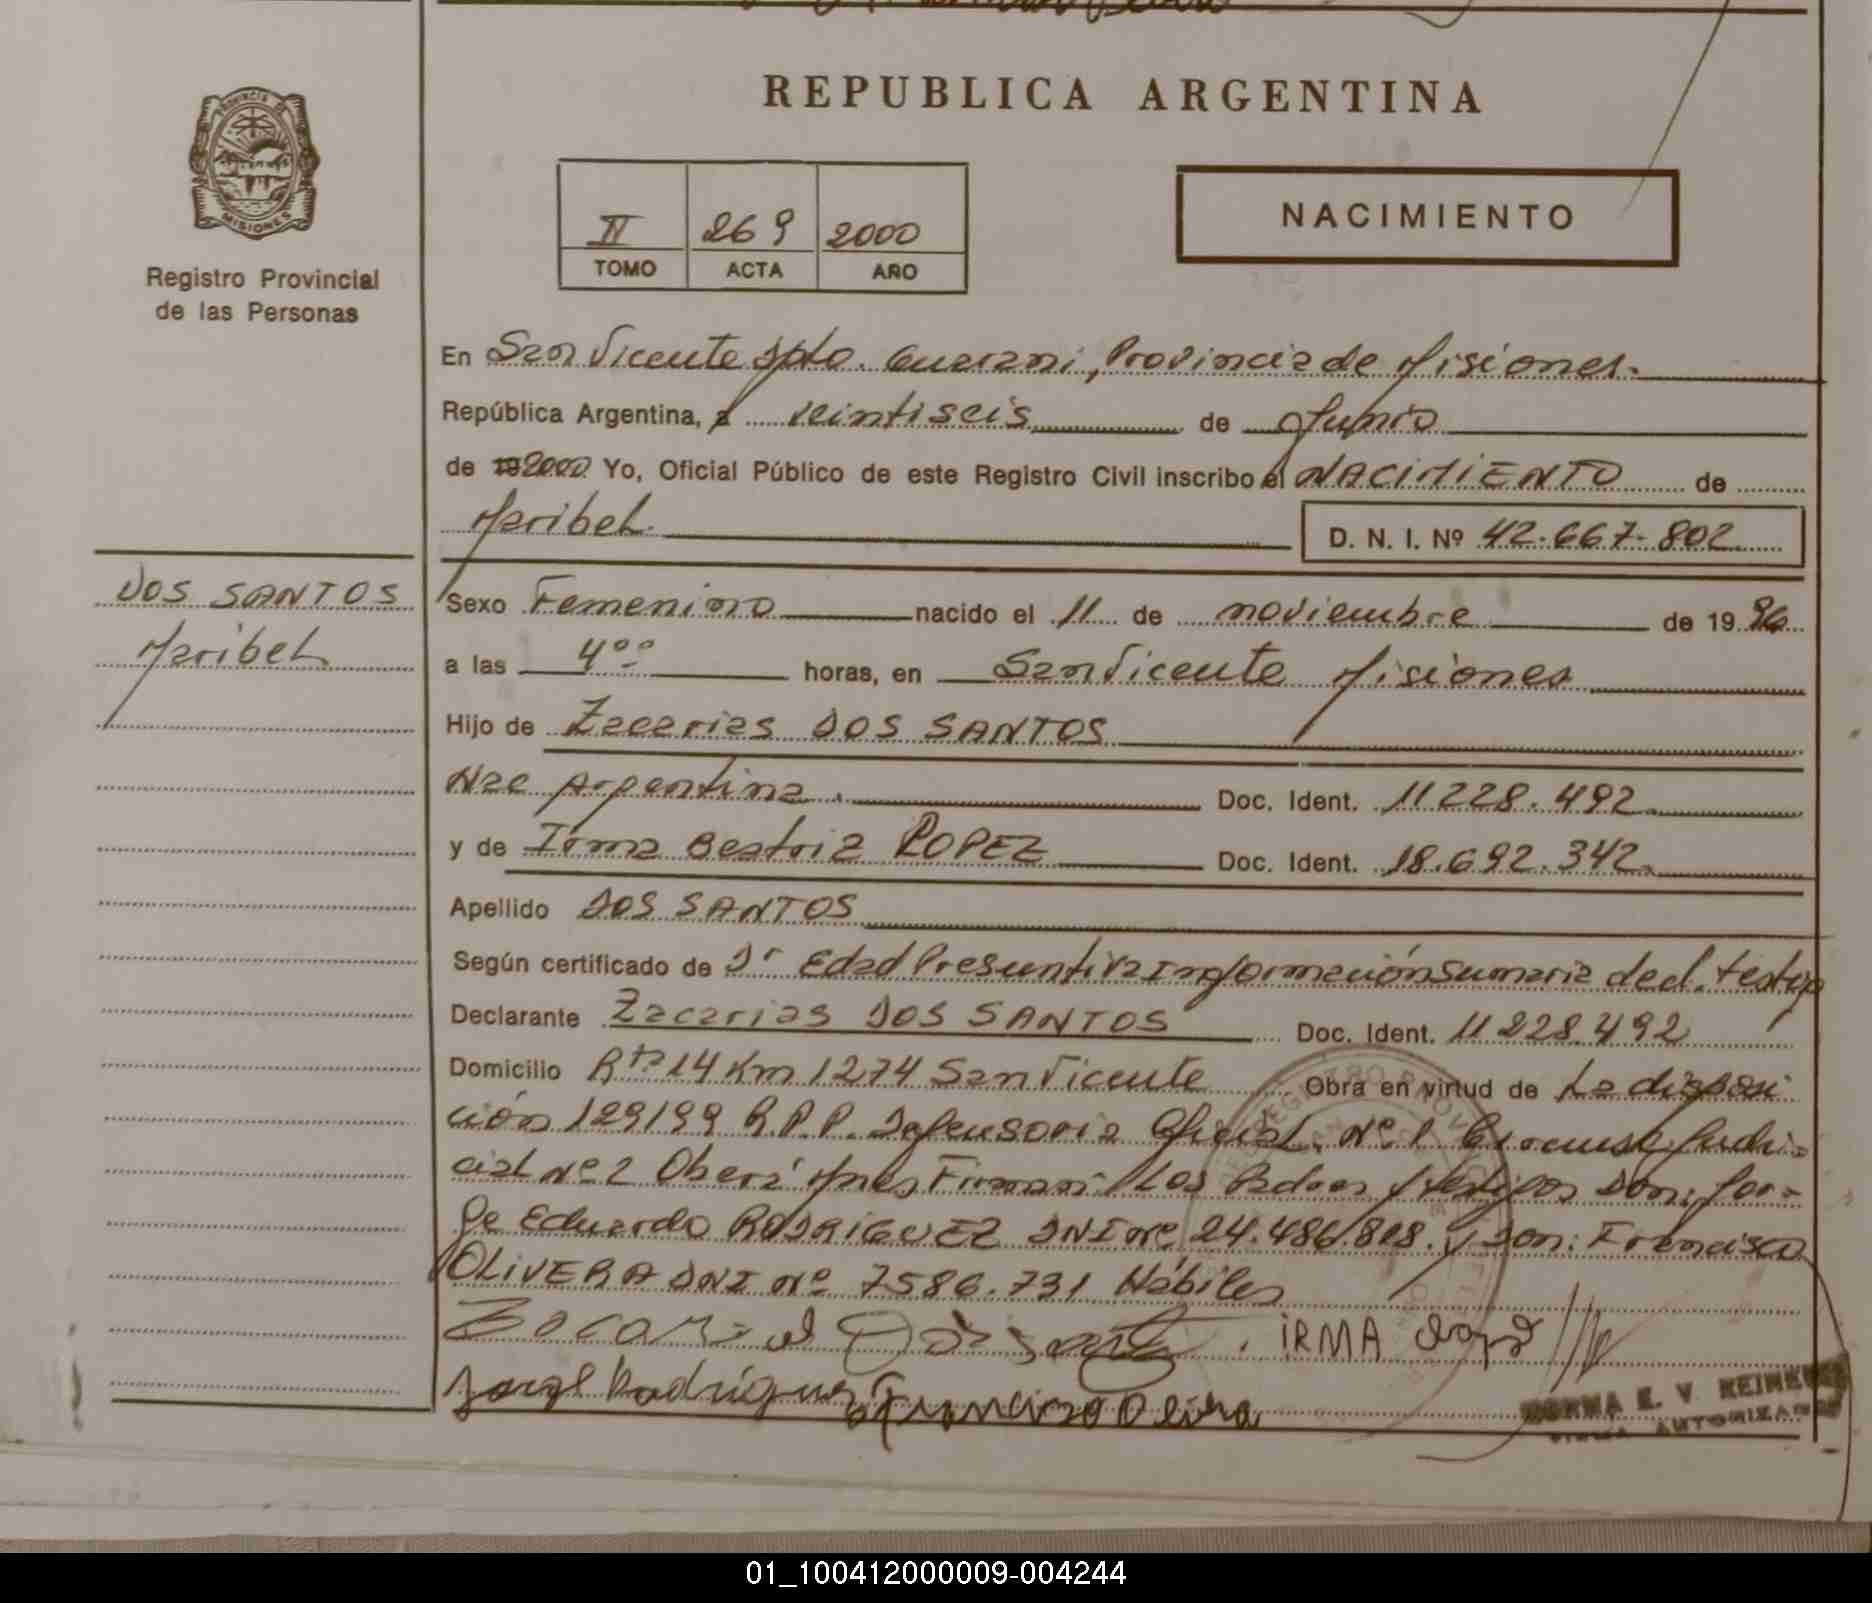 REPUBLICA ARGENTINA
PROVINCIA DE
MISIONES
Registro Provincial
de las Personas
II 269 2000
TOMO ACTA AÑO
NACIMIENTO
En San Vicente Dpto. Guarani, Provincia de Misiones.
República Argentina, a veintiseis de Junio
de 19 2000 Yo, Oficial Público de este Registro Civil inscribo el NACIMIENTO de
Maribel
D. N. I. Nº 42.667.802
DOS SANTOS
Maribel
Sexo Femenino nacido el 11 de noviembre de 19 96
a las 4°° horas, en San Vicente Misiones
Hijo de Zacarias DOS SANTOS
Nac Argentina. Doc. Ident. 11228.492
y de Irma Beatriz LOPEZ Doc. Ident. 18.692.342
Apellido DOS SANTOS
Según certificado de Dr Edad Presuntiva Información Sumaria decl. testig
Declarante Zacarias DOS SANTOS Doc. Ident. 11228.492
Domicilio Rta 14 Km 1274 San Vicente Obra en virtud de La disposi
ción 129/99 R.P.P. Defensoria Oficial Nº 1 Circunsc. Judi-
cial nº 2 Oberá Mnes Firman Los Padres y testigos Don: Jor-
ge Eduardo RODRIGUEZ DNI nº 24.486.808. y Don: Francisco
OLIVERA DNI nº 7586.731 Hábiles
Zacarias Dos Santos. IRMA Lopez
Jorge Rodriguez Francisco Olivera
NORMA E. V. REINE
FIRMA AUTORIZADA
01_100412000009-004244